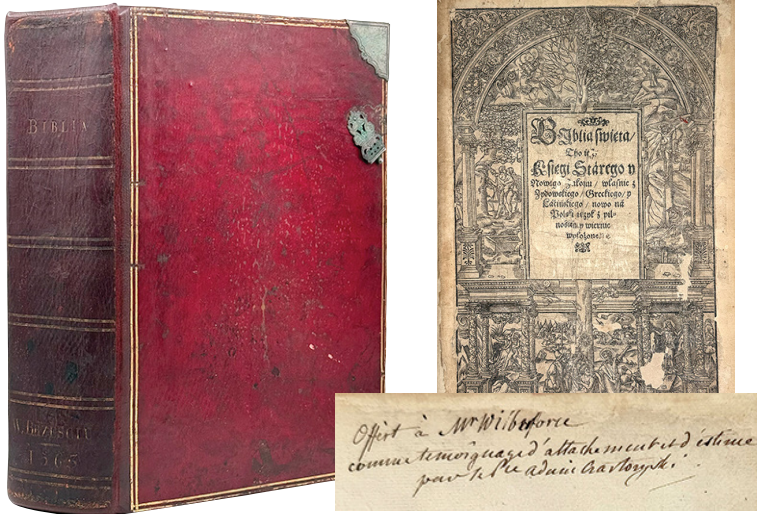 BIBLIA
W BRZESCIU
1563
Biblia święta/
Tho iest/
Księgi Starego y
Nowego Zakonu / własnie z
Zydowskiego / Greckiego / y
Łacińskiego / nowo ná
Polski ięzyk z pil-
nością y wiernie
wyłożone.
Offert à Mr Wilberforce
comme temoignage d'attachement et d'estime
par le Pce adam Czartoryski